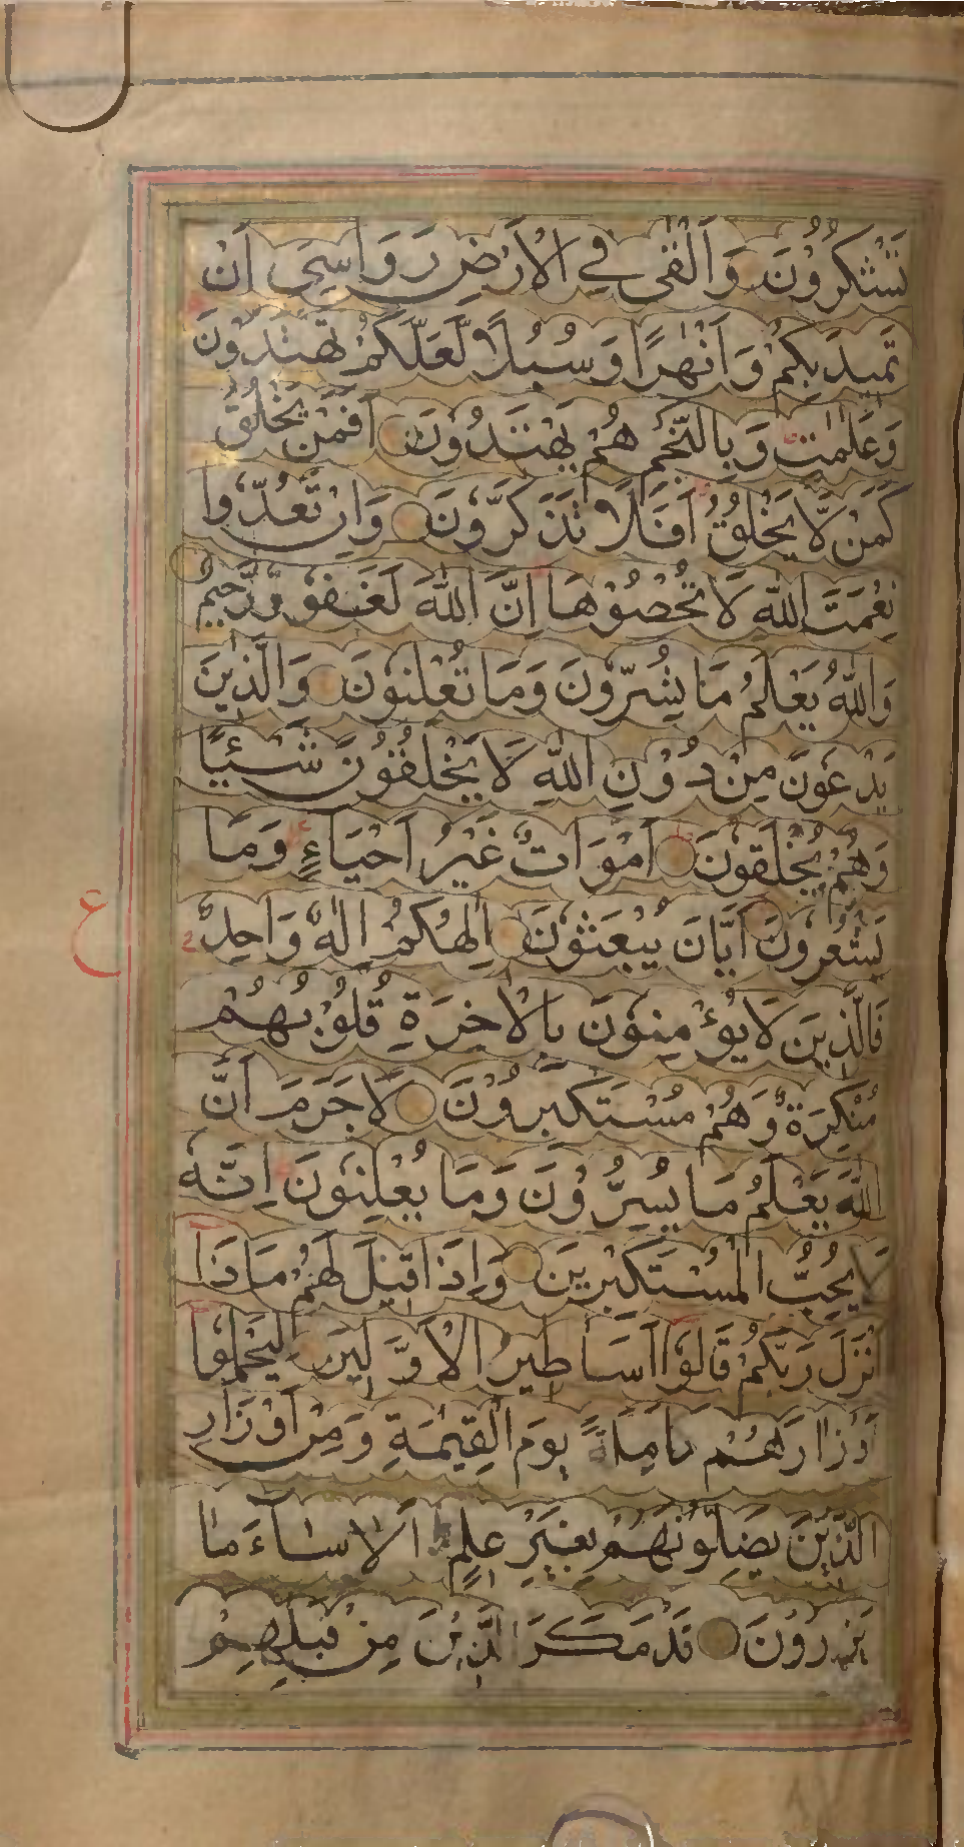 تَشْكُرُوْنَ وَاَلْقٰى فِي الْاَرْضِ رَوَاسِيَ اَنْ
تَمِيدَ بِكُمْ وَاَنْهٰرًا وَسُبُلًا لَعَلَّكُمْ تَهْتَدُوْنَ
وَعَلٰمٰتٍ وَبِالنَّجْمِ هُمْ يَهْتَدُوْنَ اَفَمَنْ يَخْلُقُ
كَمَنْ لَّا يَخْلُقُ اَفَلَا تَذَكَّرُوْنَ وَاِنْ تَعُدُّوا
نِعْمَتَ اللّٰهِ لَا تُحْصُوْهَا اِنَّ اللّٰهَ لَغَفُوْرٌ رَّحِيْمٌ
وَاللّٰهُ يَعْلَمُ مَا تُسِرُّوْنَ وَمَا تُعْلِنُوْنَ وَالَّذِيْنَ
يَدْعُوْنَ مِنْ دُوْنِ اللّٰهِ لَا يَخْلُقُوْنَ شَيْئًا
وَهُمْ يُخْلَقُوْنَ اَمْوَاتٌ غَيْرُ اَحْيَاءٍ وَمَا
يَشْعُرُوْنَ اَيَّانَ يُبْعَثُوْنَ اِلٰهُكُمْ اِلٰهٌ وَاحِدٌ
فَالَّذِيْنَ لَا يُؤْمِنُوْنَ بِالْاٰخِرَةِ قُلُوْبُهُمْ
مُنْكِرَةٌ وَهُمْ مُسْتَكْبِرُوْنَ لَا جَرَمَ اَنَّ
اللّٰهَ يَعْلَمُ مَا يُسِرُّوْنَ وَمَا يُعْلِنُوْنَ اِنَّهٗ
لَا يُحِبُّ الْمُسْتَكْبِرِيْنَ وَاِذَا قِيْلَ لَهُمْ مَاذَا
اَنْزَلَ رَبُّكُمْ قَالُوْا اَسَاطِيْرُ الْاَوَّلِيْنَ لِيَحْمِلُوْا
اَوْزَارَهُمْ كَامِلَةً يَوْمَ الْقِيٰمَةِ وَمِنْ اَوْزَارِ
الَّذِيْنَ يُضِلُّوْنَهُمْ بِغَيْرِ عِلْمٍ اَلَا سَاءَ مَا
يَزِرُوْنَ قَدْ مَكَرَ الَّذِيْنَ مِنْ قَبْلِهِمْ
ع